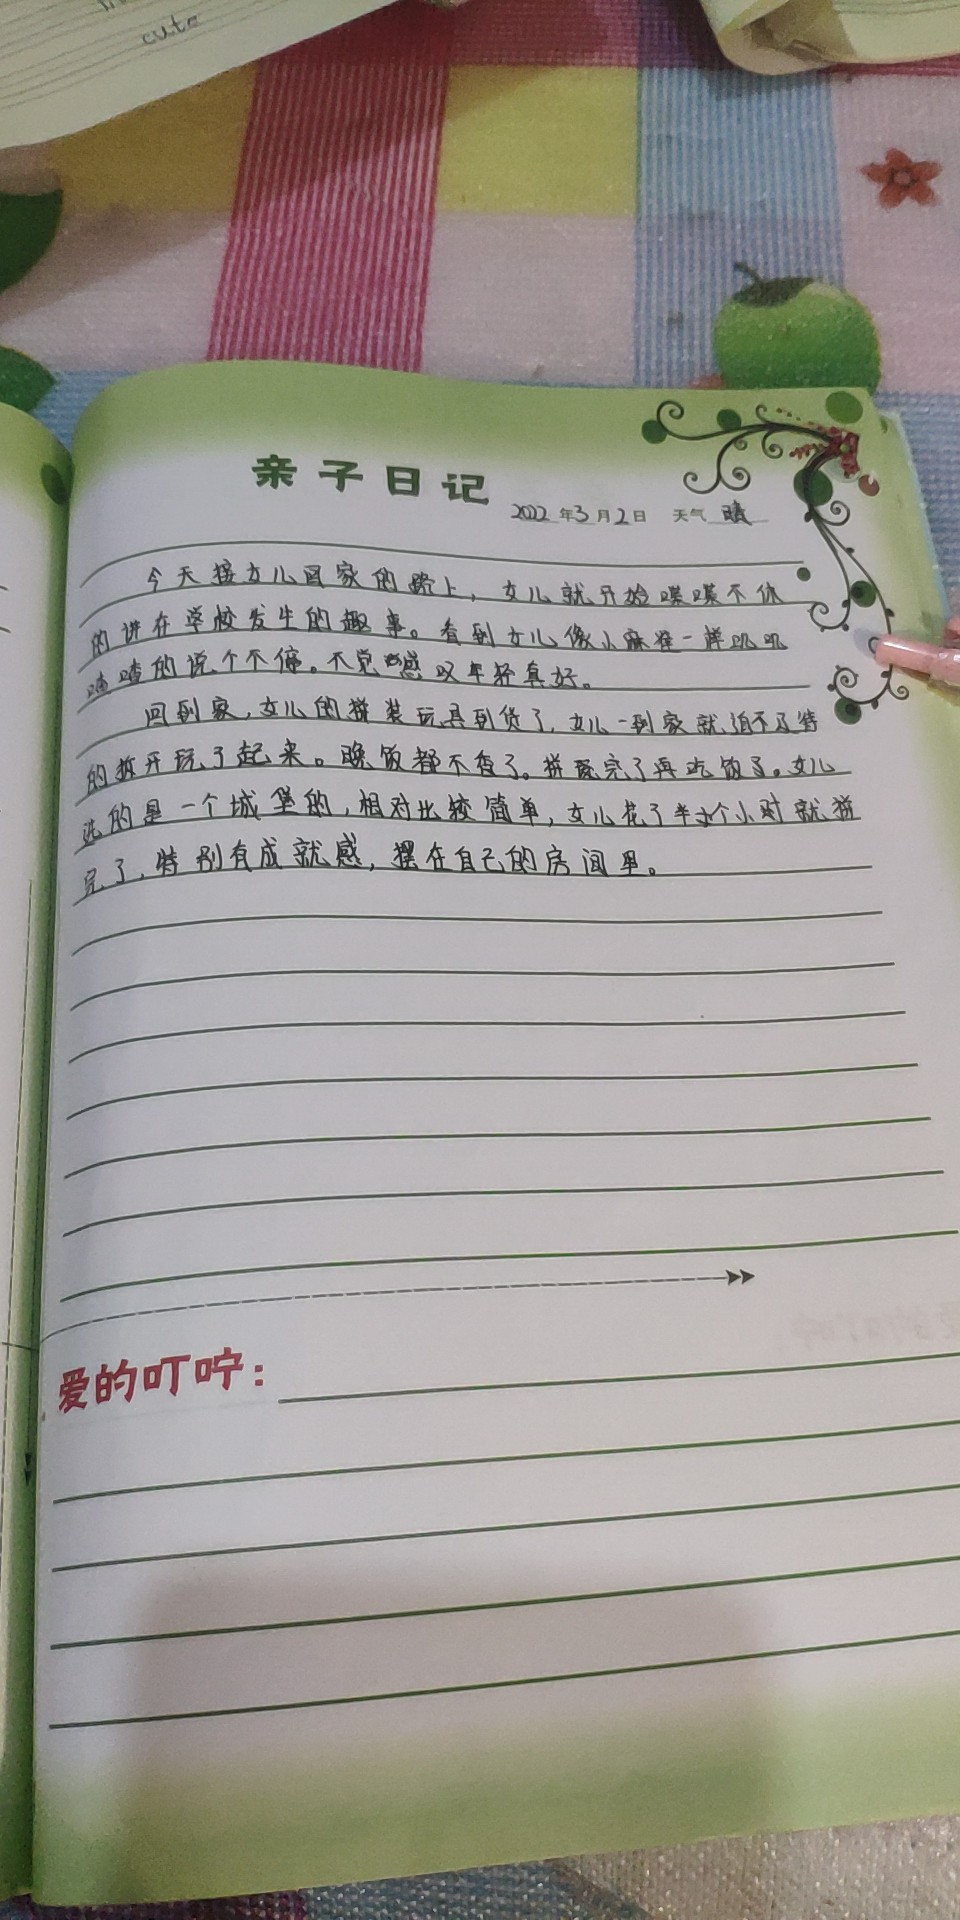 cute
亲子日记
2022年3月2日 天气 晴
今天接女儿回家的路上，女儿就开始喋喋不休
的讲在学校发生的趣事。看到女儿像小麻雀一样叽叽
喳喳的说个不停。不觉感叹年轻真好。
回到家，女儿的拼装玩具到货了，女儿一到家就迫不及待
的拆开玩了起来。晚饭都不香了。拼完了再吃饭了。女儿
选的是一个城堡的，相对比较简单，女儿花了半个小时就拼
完了，特别有成就感，摆在自己的房间里。
爱的叮咛：